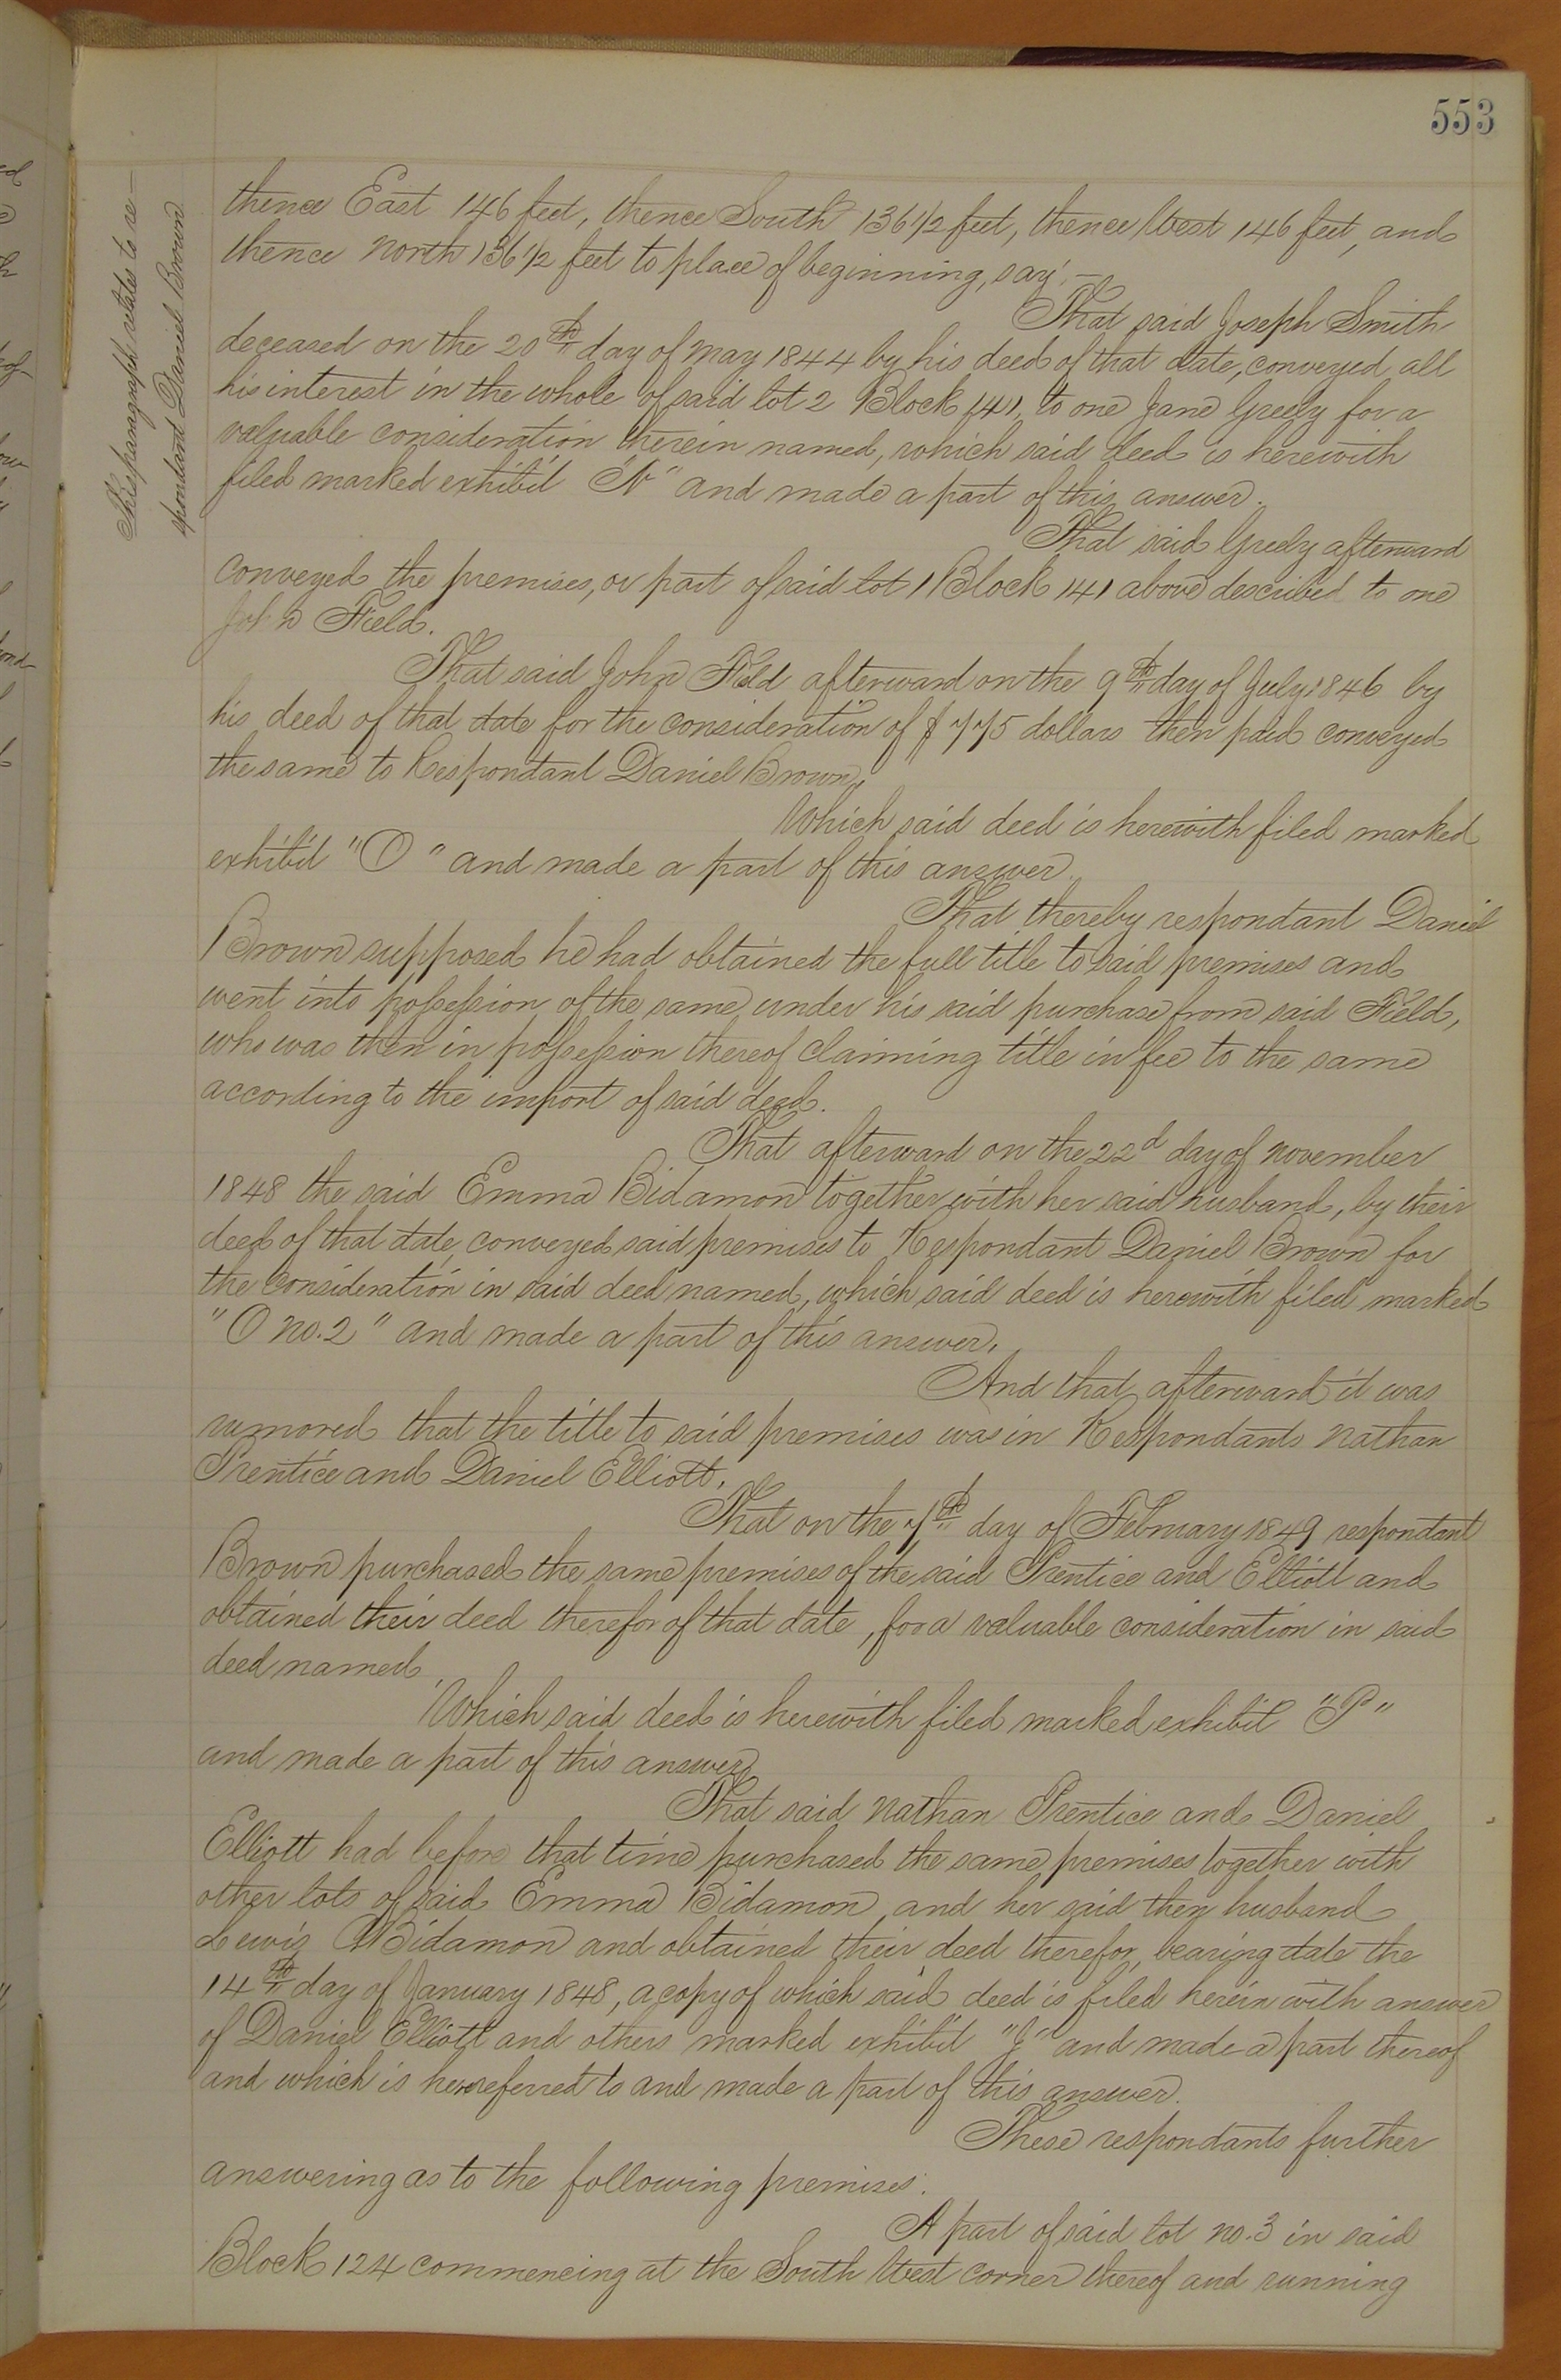 553
This paragraph relates to re-
spondant Daniel Brown
thence East 146 feet, thence South 136 1/2 feet, thence West 146 feet, and
thence North 136 1/2 feet to place of beginning, say:—
That said Joseph Smith
deceased on the 20th day of May 1844 by his deed of that date, conveyed all
his interest in the whole of said lot 2 Block 141, to one Jane Greely for a
valuable consideration therein named, which said deed is herewith
filed marked exhibit "N" and made a part of this answer.
That said Greely afterward
conveyed the premises, or part of said lot 1 Block 141 above described to one
John Field.
That said John Field afterward on the 9th day of July 1846 by
his deed of that date for the consideration of $775 dollars then paid conveyed
the same to Respondant Daniel Brown,
Which said deed is herewith filed marked
exhibit "O" and made a part of this answer.
That thereby respondant Daniel
Brown supposed he had obtained the full title to said premises and
went into possession of the same under his said purchase from said Field,
who was then in possession thereof claiming title in fee to the same
according to the import of said deed.
That afterward on the 22d day of November
1848 the said Emma Bidamon together with her said husband, by their
deed of that date, conveyed said premises to Respondant Daniel Brown for
the consideration in said deed named, which said deed is herewith filed marked
"O no. 2" and made a part of this answer,
And that afterward it was
rumored that the title to said premises was in Respondants Nathan
Prentice and Daniel Elliott.
That on the 7th day of February 1849 respondant
Brown purchased the same premises of the said Prentice and Elliott and
obtained their deed therefor of that date, for a valuable consideration in said
deed named
Which said deed is herewith filed marked exhibit "P"
and made a part of this answer
That said Nathan Prentice and Daniel
Elliott had before that time purchased the same premises together with
other lots of said Emma Bidamon and her said then husband
Lewis Bidamon and obtained their deed therefor, bearing date the
14th day of January 1848, a copy of which said deed is filed herein with answer
of Daniel Elliott and others marked exhibit "J" and made a part thereof
and which is here referred to and made a part of this answer.
These respondants further
answering as to the following premises:
A part of said lot no. 3 in said
Block 124 commencing at the South West corner thereof and running